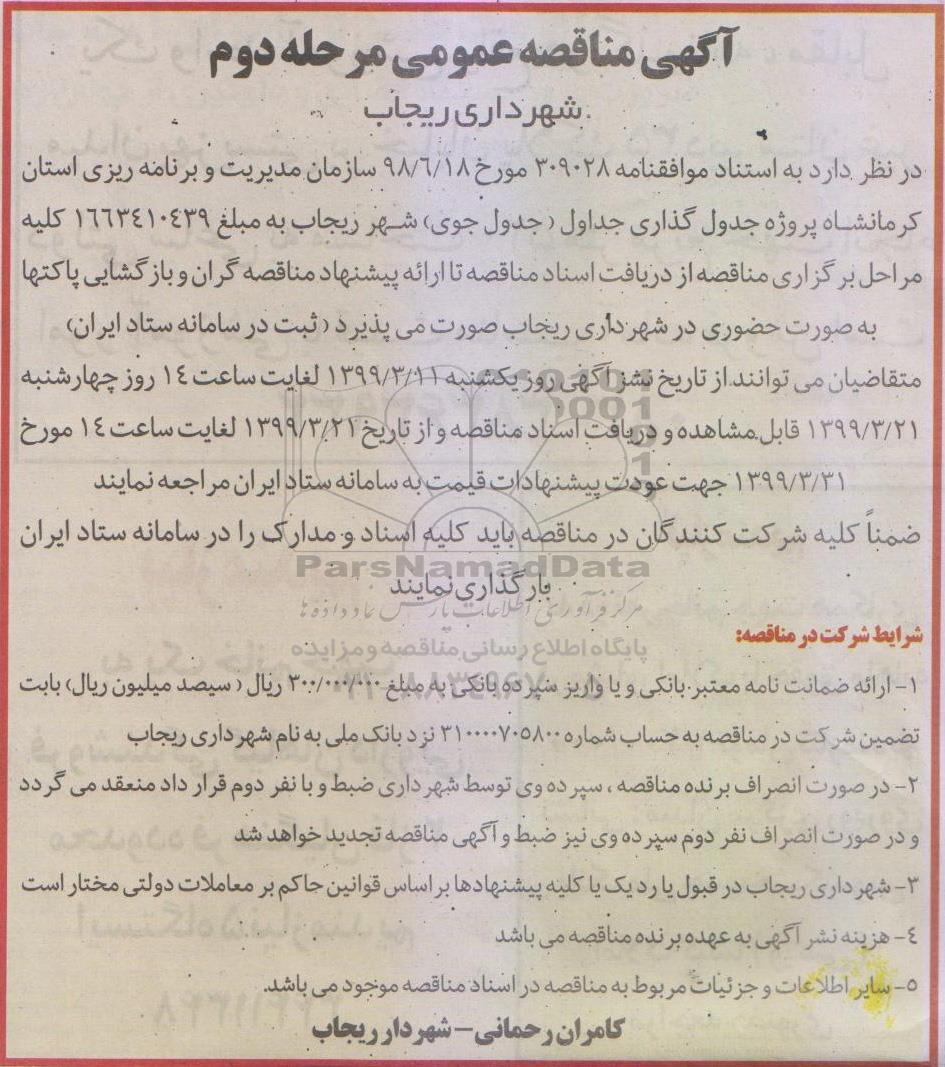 آگهی مناقصه عمومی مرحله دوم
شهرداری ریجاب
در نظر دارد به استناد موافقنامه ۳۰۹۰۲۸ مورخ ۹۸/۶/۱۸ سازمان مدیریت و برنامه ریزی استان
کرمانشاه پروژه جدول گذاری جداول (جدول جوی) شهر ریجاب به مبلغ ۱۶۶۳۴۱۰۴۳۹ کلیه
مراحل برگزاری مناقصه از دریافت اسناد مناقصه تا ارائه پیشنهاد مناقصه گران و بازگشایی پاکتها
به صورت حضوری در شهرداری ریجاب صورت می پذیرد (ثبت در سامانه ستاد ایران)
متقاضیان می توانند از تاریخ نشر آگهی روز یکشنبه ۱۳۹۹/۳/۱۱ لغایت ساعت ۱۴ روز چهارشنبه
۱۳۹۹/۳/۲۱ قابل مشاهده و دریافت اسناد مناقصه و از تاریخ ۱۳۹۹/۳/۲۱ لغایت ساعت ۱۴ مورخ
۱۳۹۹/۳/۳۱ جهت عودت پیشنهادات قیمت به سامانه ستاد ایران مراجعه نمایند
ضمناً کلیه شرکت کنندگان در مناقصه باید کلیه اسناد و مدارک را در سامانه ستاد ایران
ParsNamadData
بارگذاری نمایند
مرکز فرآوری اطلاعات پارس نماد داده ها
شرایط شرکت در مناقصه:
پایگاه اطلاع رسانی مناقصه و مزایده
۱- ارائه ضمانت نامه معتبر بانکی و یا واریز سپرده بانکی به مبلغ ۳۰۰/۰۰۰/۰۰۰ ریال (سیصد میلیون ریال) بابت
تضمین شرکت در مناقصه به حساب شماره ۳۱۰۰۰۰۷۰۵۸۰۰ نزد بانک ملی به نام شهرداری ریجاب
۲- در صورت انصراف برنده مناقصه ، سپرده وی توسط شهرداری ضبط و با نفر دوم قرار داد منعقد می گردد
و در صورت انصراف نفر دوم سپرده وی نیز ضبط و آگهی مناقصه تجدید خواهد شد
۳- شهرداری ریجاب در قبول یا رد یک یا کلیه پیشنهادها بر اساس قوانین حاکم بر معاملات دولتی مختار است
۴- هزینه نشر آگهی به عهده برنده مناقصه می باشد
۵- سایر اطلاعات و جزئیات مربوط به مناقصه در اسناد مناقصه موجود می باشد.
کامران رحمانی - شهردار ریجاب